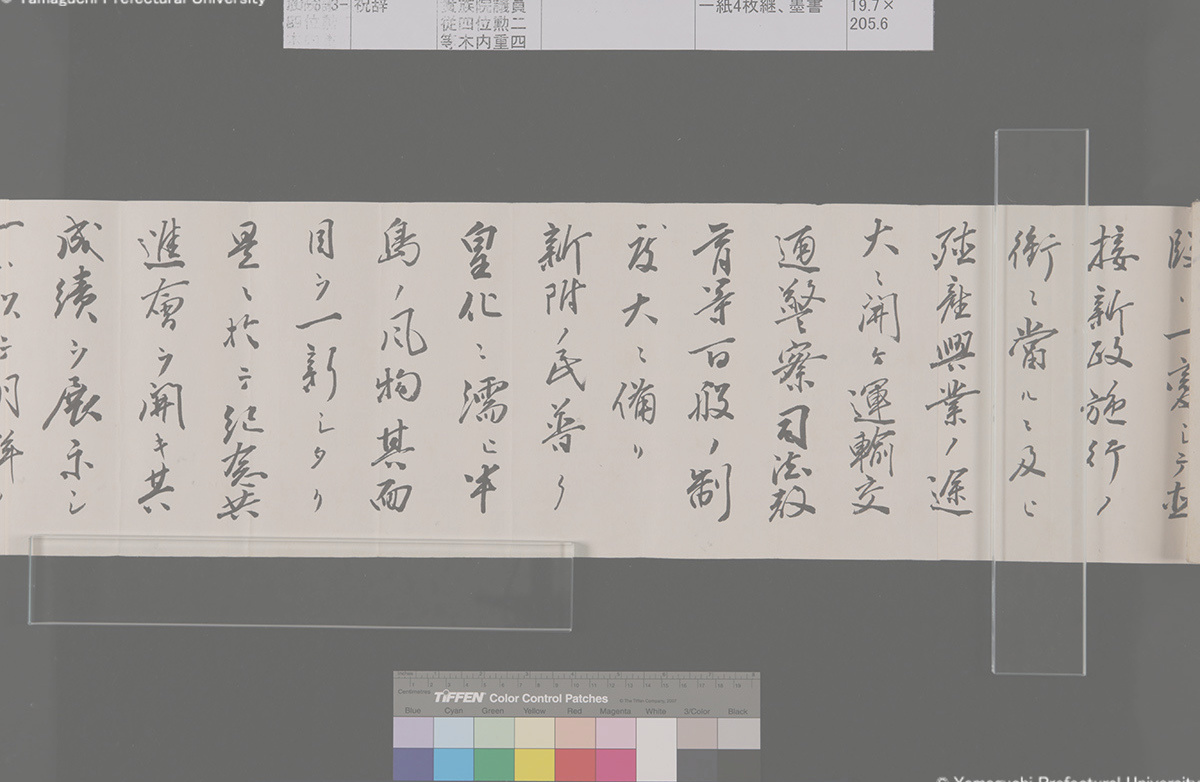 Yamaguchi Prefectural University
祝辞
貴族院議員
従四位勲二
等木内重四
一紙4枚継、墨書
19.7×
205.6
一変シテ直
接新政施行ノ
衝ニ當ルニ及ヒ
殖産興業ノ途
大ニ開ケ運輸交
通警察司法教
育等百般ノ制
度大ニ備リ
新附ノ民普ク
皇化ニ濡ヒ半
島ノ風物其面
目ヲ一新シタリ
是ニ於テ紀念共
進會ヲ開キ其
成績ヲ展示シ
TIFFEN Color Control Patches
Blue Cyan Green Yellow Red Magenta White 3/Color Black
© Yamaguchi Prefectural University